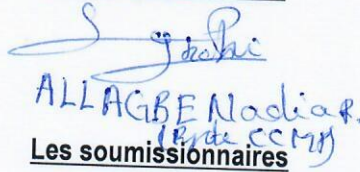 ALLAGBE Nadia R.
CCMP)
Les soumissionnaires